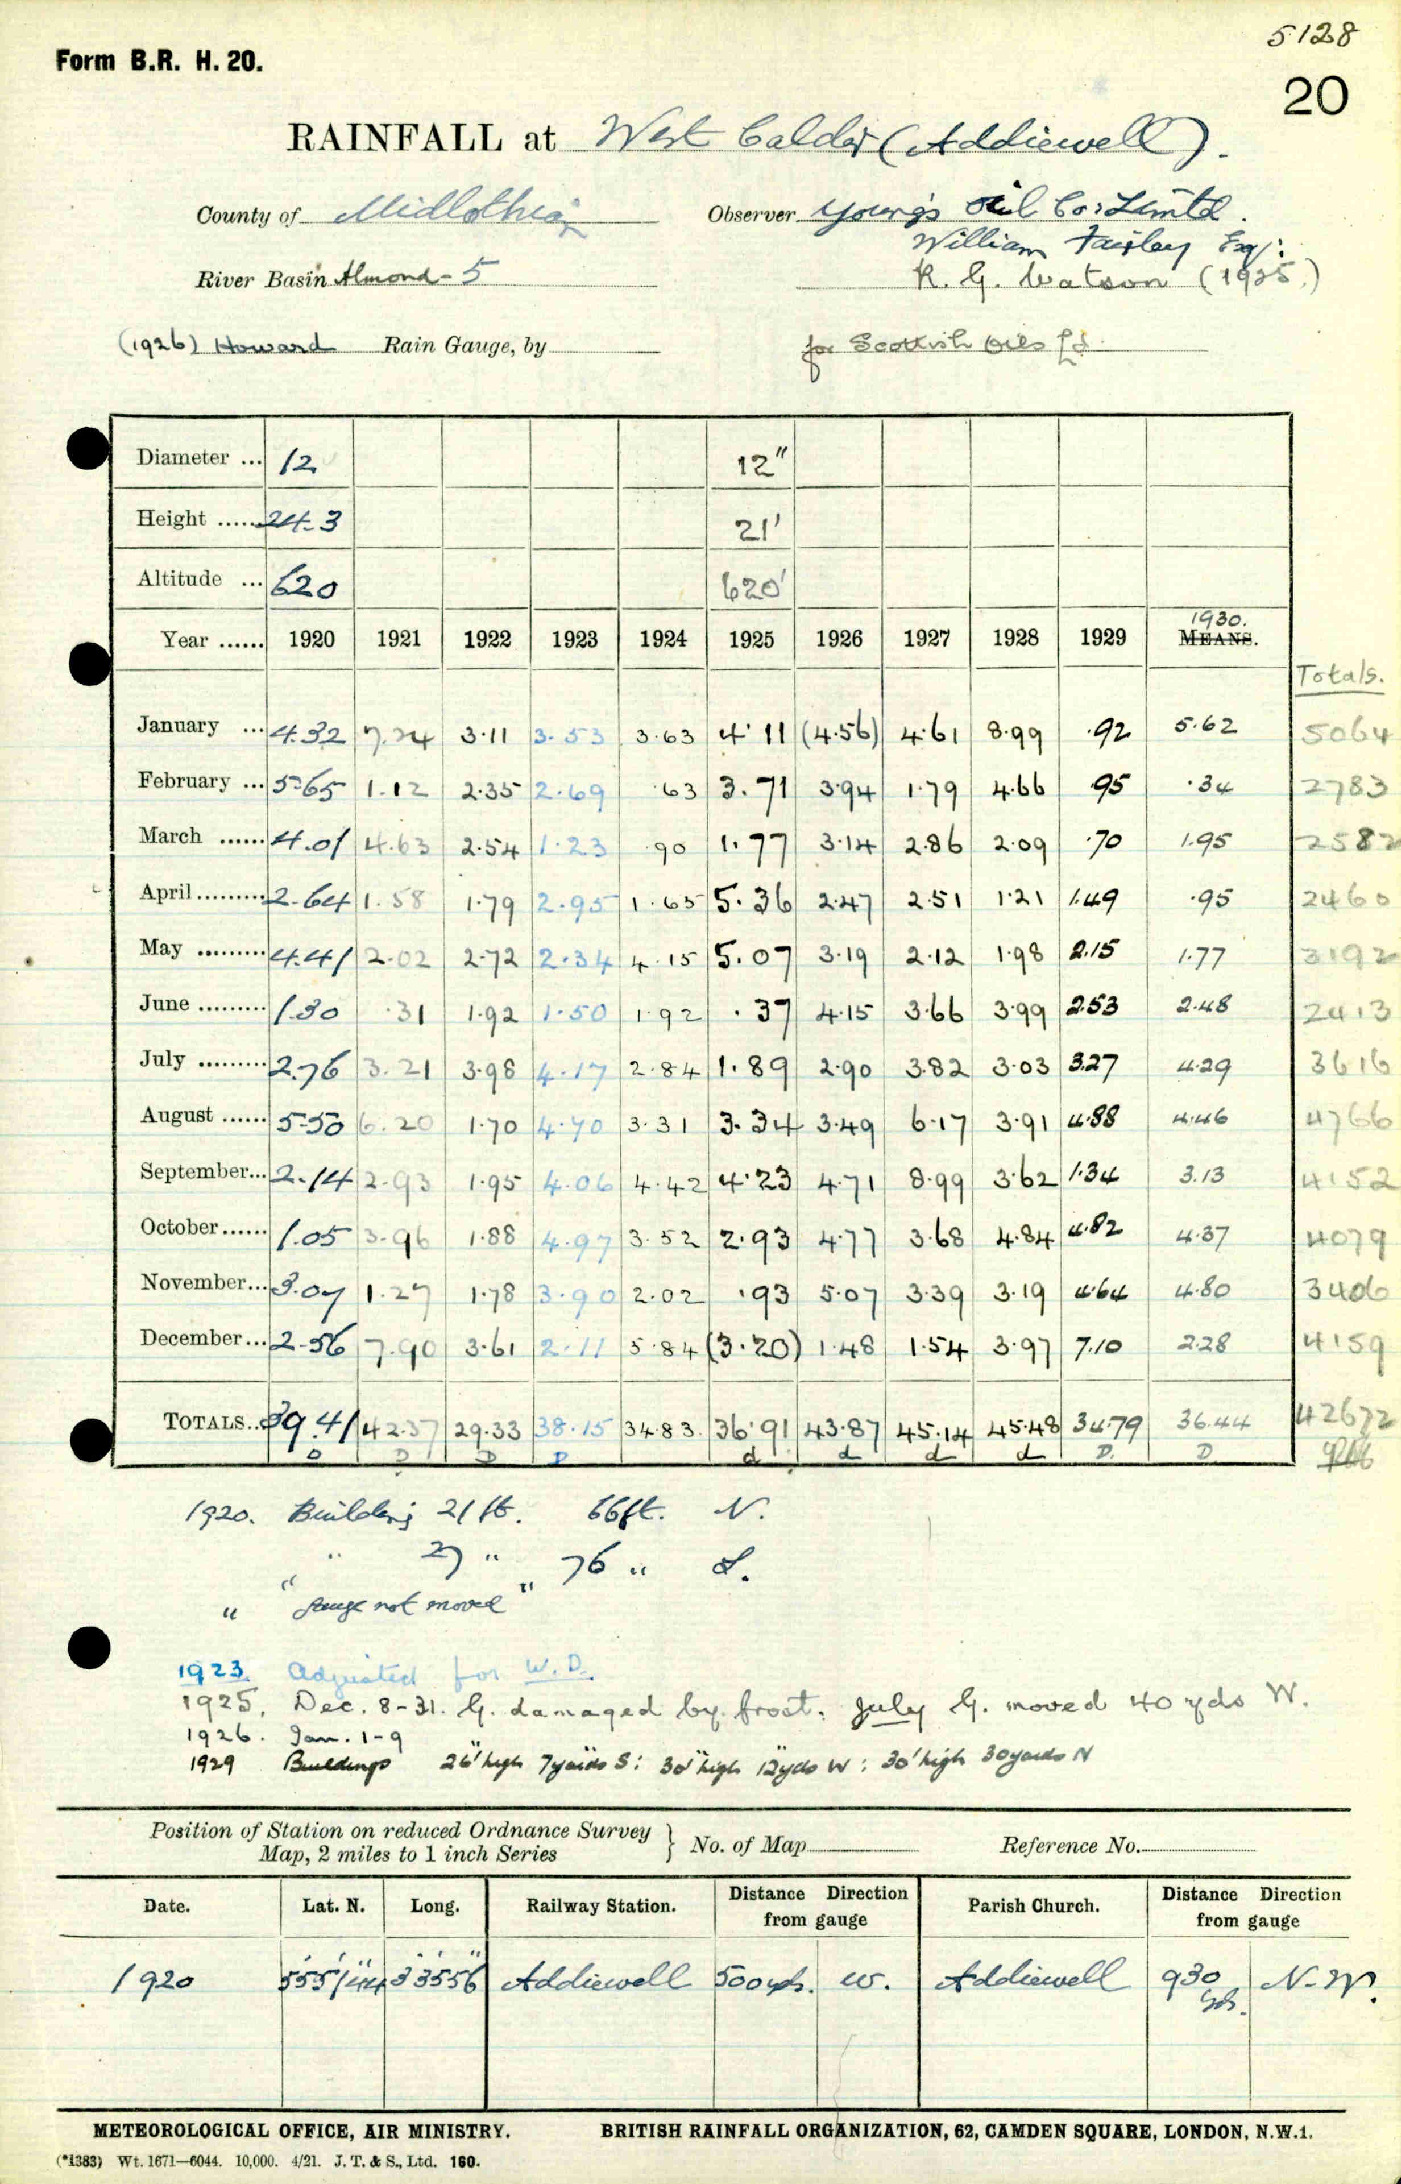 5128
Form B.R. H. 20.
20
RAINFALL at West Calder (Addiewell).
County of Midlothian Observer Young's Oil Co: Limtd.
William Fairley Esq:
River Basin Almond - 5 R. G. Watson (1925.)
(1926) Howard Rain Gauge, by for Scottish Oils Ld.
Diameter ... 12 12"
Height ...... 24.3 21'
Altitude ... 620 620'
1930.
Year ...... 1920 1921 1922 1923 1924 1925 1926 1927 1928 1929 MEANS.
Totals.
January ... 4.32 7.24 3.11 3.53 3.63 4.11 (4.56) 4.61 8.99 .92 5.62 5064
February ... 5.65 1.12 2.35 2.69 .63 3.71 3.94 1.79 4.66 .95 .34 2783
March ...... 4.01 4.63 2.54 1.23 .90 1.77 3.14 2.86 2.09 .70 1.95 2582
April ......... 2.64 1.58 1.79 2.95 1.65 5.36 2.47 2.51 1.21 1.49 .95 2460
May ......... 4.41 2.02 2.72 2.34 4.15 5.07 3.19 2.12 1.98 2.15 1.77 3192
June ......... 1.30 .31 1.92 1.50 1.92 .37 4.15 3.66 3.99 2.53 2.48 2413
July ......... 2.76 3.21 3.98 4.17 2.84 1.89 2.90 3.82 3.03 3.27 4.29 3616
August ...... 5.50 6.20 1.70 4.70 3.31 3.34 3.49 6.17 3.91 4.88 4.46 4766
September... 2.14 2.93 1.95 4.06 4.42 4.23 4.71 8.99 3.62 1.34 3.13 4152
October...... 1.05 3.96 1.88 4.97 3.52 2.93 4.77 3.68 4.84 4.82 4.37 4079
November... 3.07 1.27 1.78 3.90 2.02 .93 5.07 3.39 3.19 4.64 4.80 3406
December... 2.56 7.90 3.61 2.11 5.84 (3.20) 1.48 1.54 3.97 7.10 2.28 4159
TOTALS.. 39.41 42.37 29.33 38.15 34.83. 36.91 43.87 45.14 45.48 34.79 36.44 42672
D D D D d d d d D. D
1920. Building 21 ft. 66ft. N.
" 27 " 76 " S.
" "Gauge not moved"
1923 Adjusted for W.D.
1925, Dec. 8-31. G. damaged by frost. July G. moved 40 yds W.
1926. Jan. 1-9
1929 Buildings 26' high 7yards S: 30' high 12yds W: 30' high 30yards N
Position of Station on reduced Ordnance Survey
Map, 2 miles to 1 inch Series } No. of Map Reference No.
Date. Lat. N. Long. Railway Station. Distance Direction from gauge Parish Church. Distance Direction from gauge
1920 55°51'44" 3°35'56" Addiewell 500 yds. W. Addiewell 930 yds. N.W.
METEOROLOGICAL OFFICE, AIR MINISTRY. BRITISH RAINFALL ORGANIZATION, 62, CAMDEN SQUARE, LONDON, N.W.1.
(*1383) Wt. 1671—6044. 10,000. 4/21. J. T. & S., Ltd. 160.